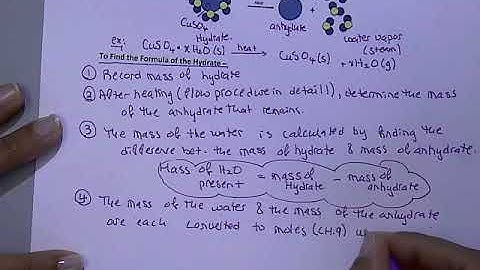 heat
CuSO4
Hydrate.
anhydrate
water vapor
(steam)
ex:
CuSO4 • xH2O(s) heat→ CuSO4(s) + xH2O(g)
To Find the Formula of the Hydrate –
① Record mass of hydrate
② After heating (flow procedure in detail), determine the mass
of the anhydrate that remains.
③ The mass of the water is calculated by finding the
difference bet. the mass of hydrate & mass of anhydrate.
Mass of H2O present = mass of Hydrate – mass of anhydrate
④ The mass of the water & the mass of the anhydrate
are each converted to moles (CH.9) u